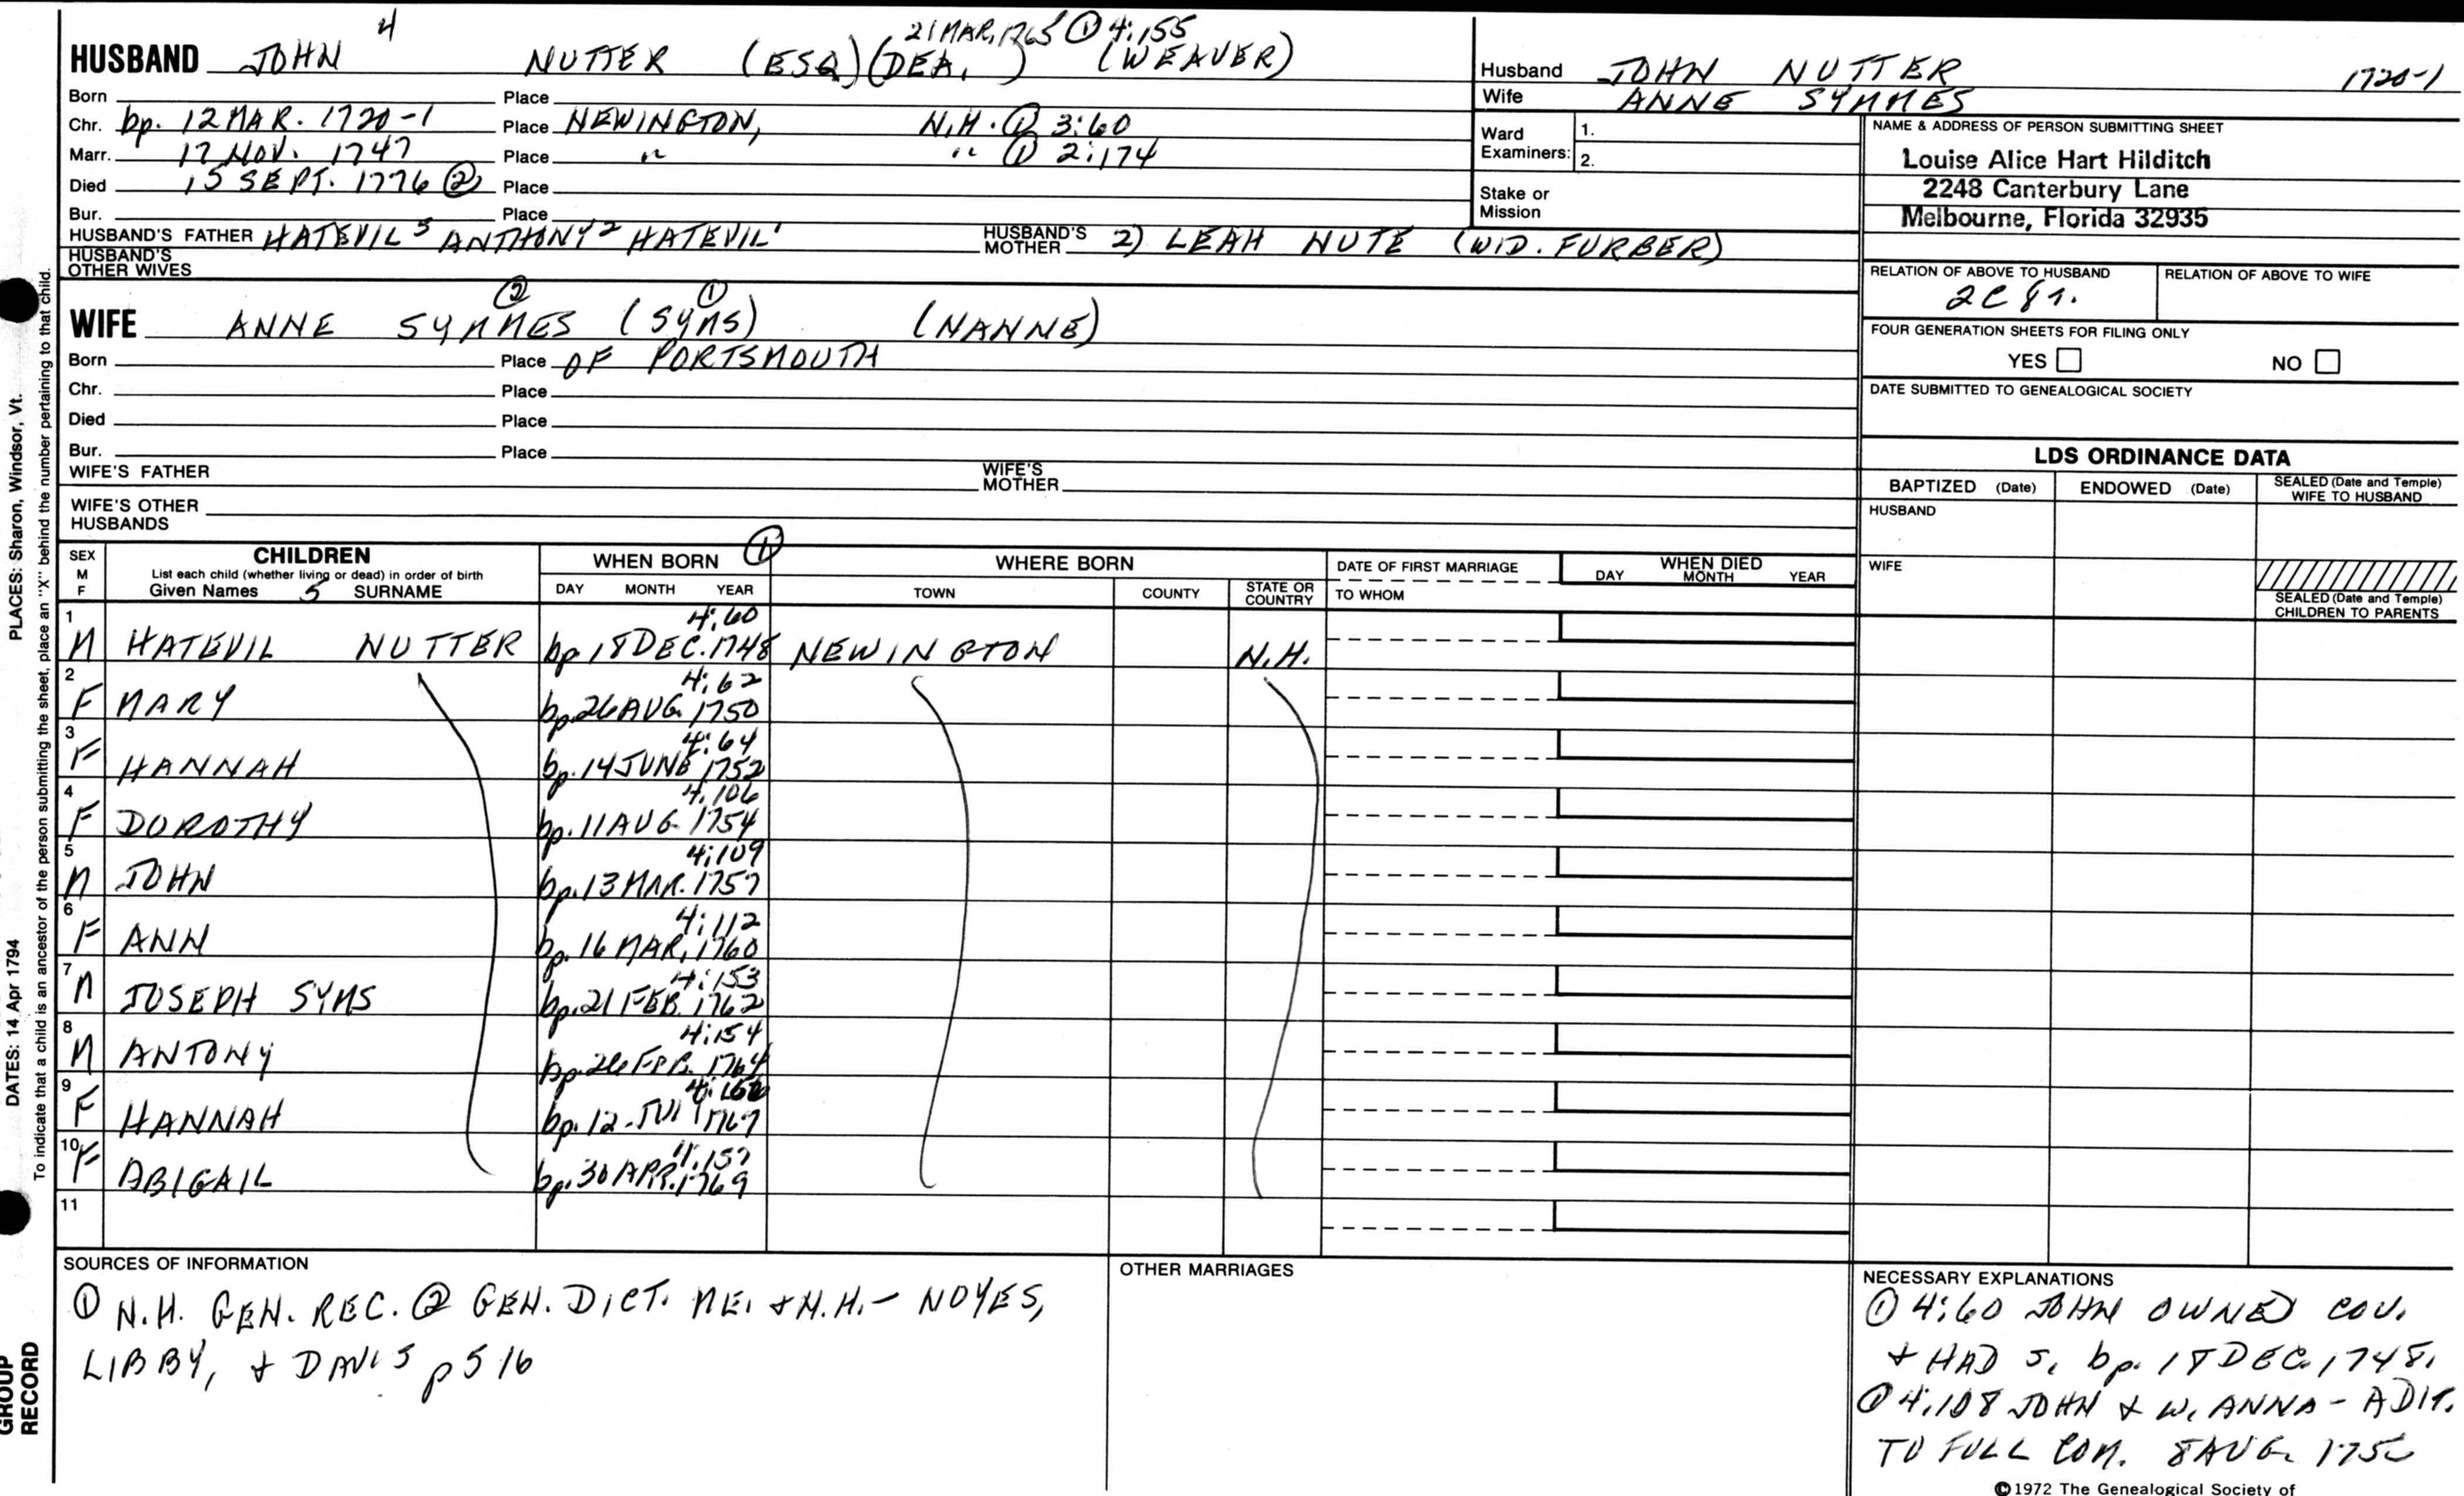 21 MAR, 1765 ① 4:155
HUSBAND JOHN 4 NUTTER (ESQ) (DEA, ) (WEAVER)
Born Place
Chr. bp. 12 MAR. 1720-1 Place NEWINGTON, N.H. ① 3:60
Marr. 17 NOV. 1747 Place " " ① 2:174
Died 15 SEPT. 1776 ② Place
Bur. Place
HUSBAND'S FATHER HATEVIL 3 ANTHONY 2 HATEVIL 1 HUSBAND'S MOTHER 2) LEAH NUTE (WID. FURBER)
HUSBAND'S OTHER WIVES
WIFE ANNE SYMMES ② (SYMS) ① (NANNE)
Born Place OF PORTSMOUTH
Chr. Place
Died Place
Bur. Place
WIFE'S FATHER WIFE'S MOTHER
WIFE'S OTHER HUSBANDS
Husband JOHN NUTTER 1720-1
Wife ANNE SYMMES
Ward Examiners: 1.
2.
Stake or Mission
NAME & ADDRESS OF PERSON SUBMITTING SHEET
Louise Alice Hart Hilditch
2248 Canterbury Lane
Melbourne, Florida 32935
RELATION OF ABOVE TO HUSBAND RELATION OF ABOVE TO WIFE
FOUR GENERATION SHEETS FOR FILING ONLY
YES NO
DATE SUBMITTED TO GENEALOGICAL SOCIETY
LDS ORDINANCE DATA
BAPTIZED (Date) ENDOWED (Date) SEALED (Date and Temple) WIFE TO HUSBAND
HUSBAND
WIFE
SEALED (Date and Temple) CHILDREN TO PARENTS
SEX M F CHILDREN
List each child (whether living or dead) in order of birth
Given Names 5 SURNAME
WHEN BORN ①
DAY MONTH YEAR
WHERE BORN
TOWN COUNTY STATE OR COUNTRY
DATE OF FIRST MARRIAGE
TO WHOM
WHEN DIED
DAY MONTH YEAR
4:60
1 M HATEVIL NUTTER bp 18 DEC. 1748 NEWINGTON N.H.
4:62
2 F MARY bp. 26 AUG. 1750
4:64
3 F HANNAH bp. 14 JUNE 1752
4:106
4 F DOROTHY bp. 11 AUG. 1754
4:109
5 M JOHN bp. 13 MAR. 1757
4:112
6 F ANN bp. 16 MAR, 1760
4:153
7 M JOSEPH SYMS bp. 21 FEB. 1762
4:154
8 M ANTONY bp. 26 FEB. 1764
9 F HANNAH bp. 12 JULY 1767
4:157
10 F ABIGAIL bp. 30 APR. 1769
11
SOURCES OF INFORMATION
① N.H. GEN. REC. ② GEN. DICT. ME. & N.H. - NOYES,
LIBBY, & DAVIS p 516
OTHER MARRIAGES
NECESSARY EXPLANATIONS
① 4:60 JOHN OWNED COV.
& HAD s. bp. 18 DEC. 1748.
① 4:108 JOHN & W. ANNA - ADM.
TO FULL COM. 8 AUG. 1756
©1972 The Genealogical Society of
PLACES: Sharon, Windsor, Vt.
DATES: 14 Apr 1794
To indicate that a child is an ancestor of the person submitting the sheet, place an "X" behind the number pertaining to that child.
GROUP
RECORD